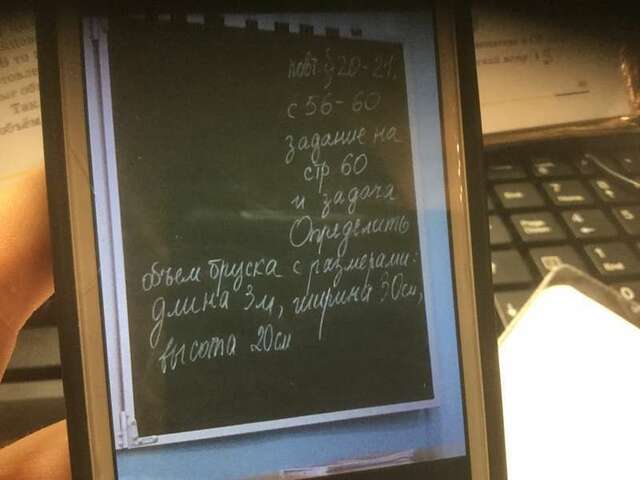 повт. § 20-21,
с 56-60
задание на
стр 60
и задача
Определить
объем бруска с размерами:
длина 3м, ширина 30см,
высота 20см